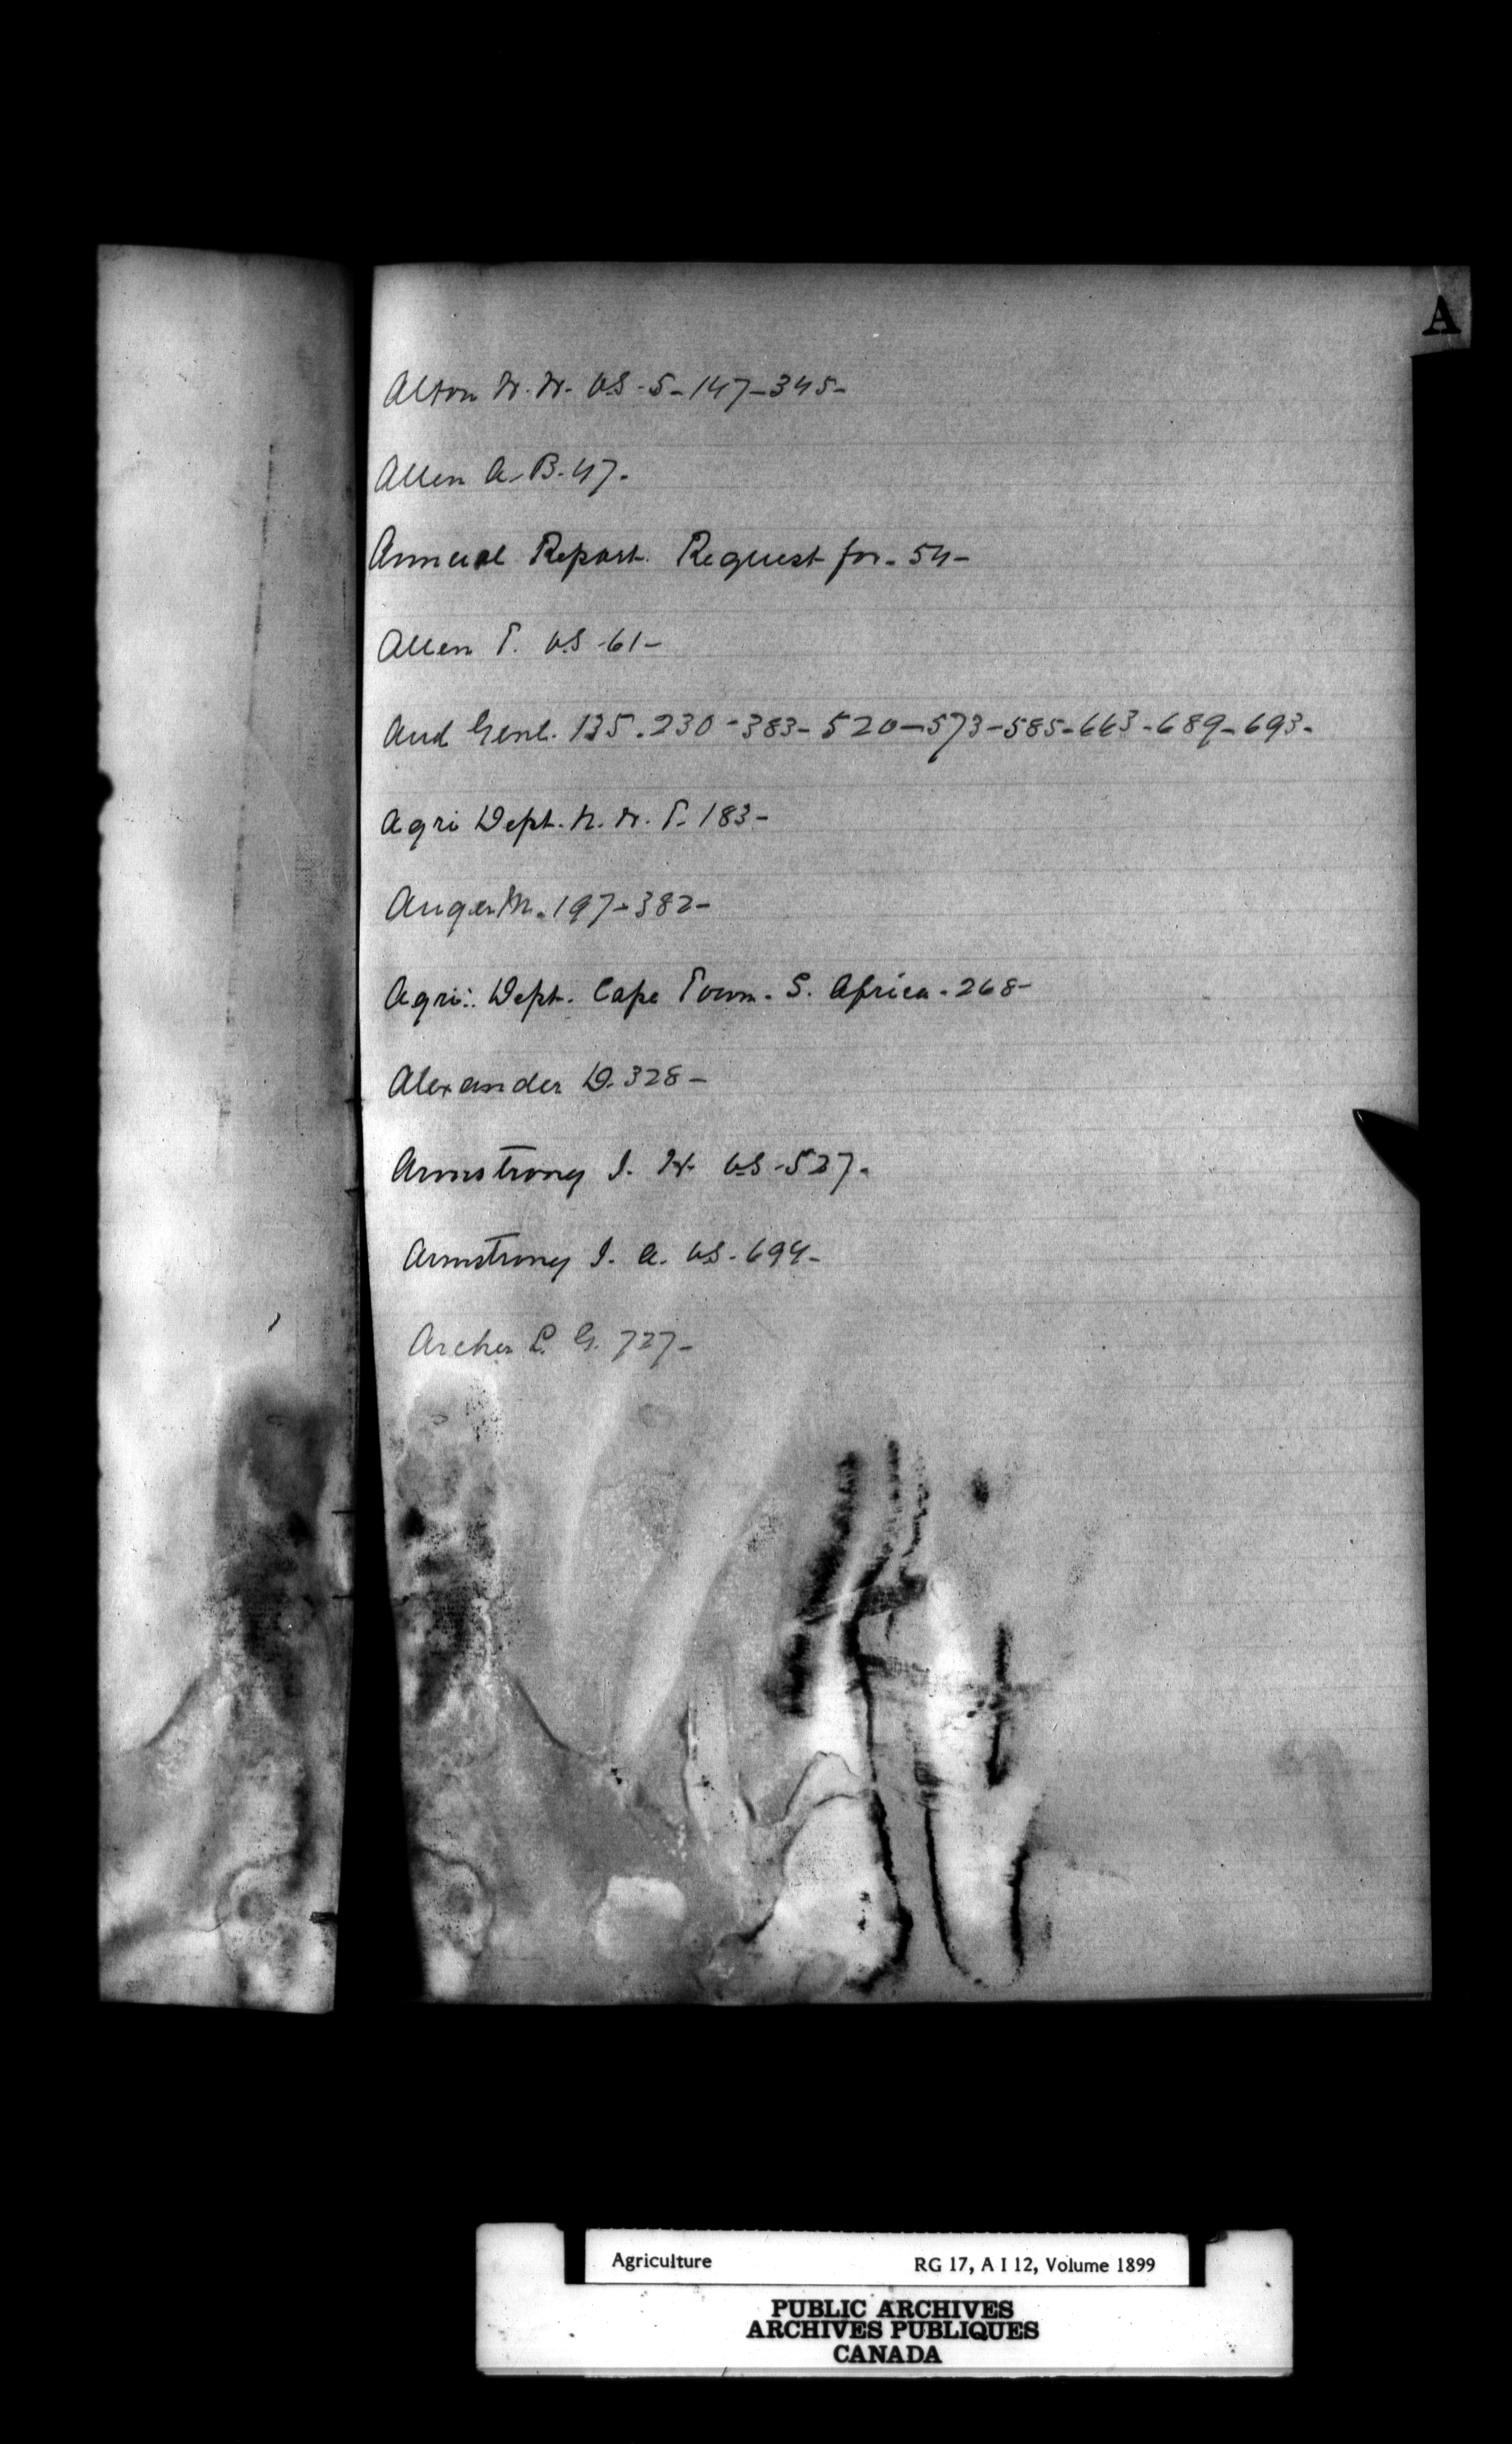 A
Alton W. W. VS - 5 - 147 - 345 -
Allen A. B. 47 -
Annual Report. Request for - 54 -
Allen T. VS - 61 -
Aud Genl. 135 . 230 - 383 - 520 - 573 - 585 - 663 - 689 - 693 -
Agri Dept. N. W. T. 183 -
Auger M. 197 - 382 -
Agri: Dept. Cape Town. S. Africa - 268 -
Alexander D. 328 -
Armstrong J. H. VS - 527 -
Armstrong J. A. VS - 694 -
Archer L. G. 727 -
Agriculture RG 17, A I 12, Volume 1899
PUBLIC ARCHIVES
ARCHIVES PUBLIQUES
CANADA